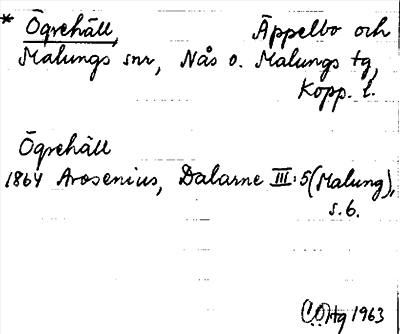 * Ögrehäll, Äppelbo och
Malungs snr, Nås o. Malungs tg,
Kopp. l.
Ögrehäll
1864 Arosenius, Dalarne III:5 (Malung),
s. 6.
Htg 1963